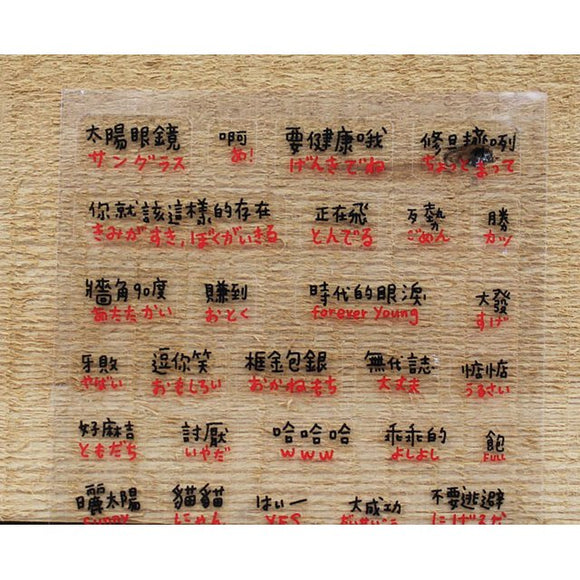 太陽眼鏡
サングラス
啊
あ!
要健康哦
げんきでね
修旦 咧
ちょっとまって
你就該這樣的存在
きみがすき,ぼくがいきる
正在飛
とんでる
歹勢
ごめん
勝
カツ
牆角90度
あたたかい
賺到
おとく
時代的眼淚
forever young
大發
すげ
牙敗
やばい
逗你笑
おもしろい
框金包銀
おかねもち
無代誌
大丈夫
惦惦
うるさい
好麻吉
ともだち
討厭
いやだ
哈哈哈
www
乖乖的
よしよし
飽
FULL
曬太陽
sunny
貓貓
にゃん
はいー
YES
大成功
不要逃避
にげるな